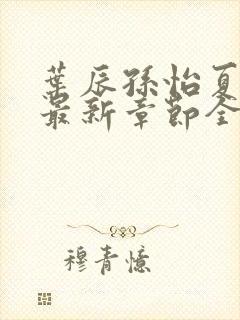 葉辰孫怡夏
最新章節全
穆青憶